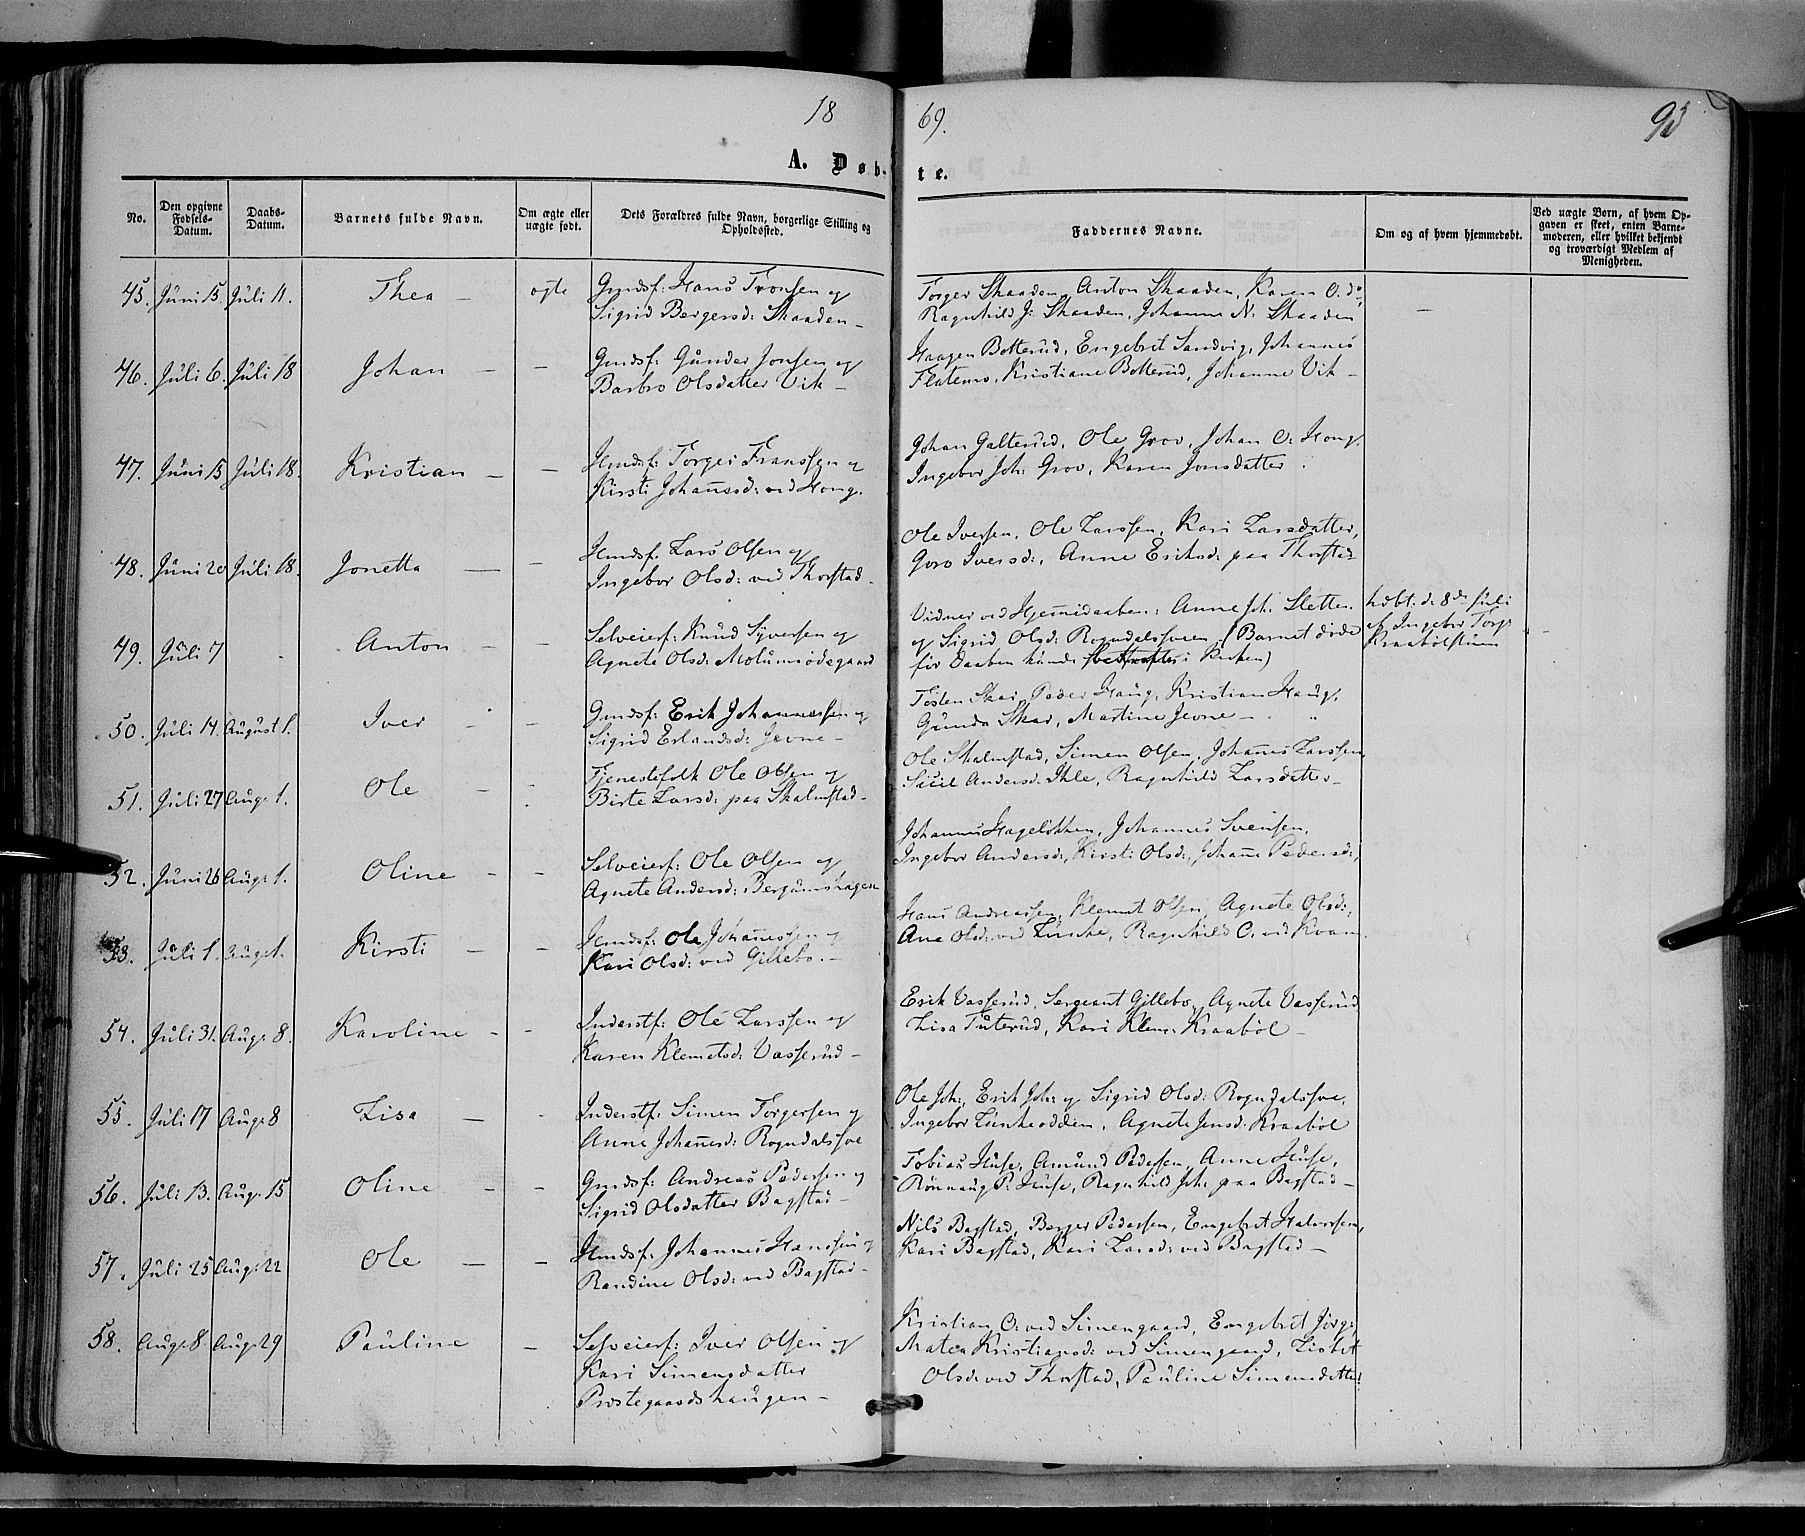 18 69. 93
A. Døb- te.
No.
Den opgivne Fødsels-Datum.
Daabs-Datum.
Barnets fulde Navn.
Om ægte eller uægte født.
Dets Forældres fulde Navn, borgerlige Stilling og Opholdssted.
Faddernes Navne.
Om og af hvem hjemmedøbt.
Ved uægte Børn, af hvem Opgaven er skeet, enten Barnemoderen, eller hvilket bekjendt og troværdigt Medlem af Menigheden.
45. Juni 15. Juli 11. Thea – ægte Gmdsf: Hans Fronsen og
Sigrid Bergersd: Skaaden –
Torger Skaaden, Anton Skaaden, Karen O. do,
Ragnhild J: Skaaden, Johanne N: Skaaden –
46. Juli 6. Juli 18 Johan – – Gmdsf: Gunder Jonsen og
Barbro Olsdatter Vik –
Haagen Botterud, Engebret Sandvig, Johannes
Flatemo, Kristiane Botterud, Johanne Vik –
47. Juni 15 Juli 18. Kristian – – Hmdsf: Torger Franssen og
Kirsti Johannesd: ved Hong.
Johan Galterud, Ole Grov, Johan O. Hong.
Ingebor Joh: Grov, Karen Jonsdatter.
48. Juni 20 Juli 18. Jonetta – – Hmdsf: Lars Olsen og
Ingebor Olsd: ved Thorstad.
Ole Iversen, Ole Larssen, Kari Larsdatter,
Goro Iversd:, Anne Eriksd: paa Thorstad
49. Juli 7 Anton – – Selveierf: Knud Syversen og
Agnete Olsd: Molumsødegaard
Vidner ved Hjemmedaaben: Anne Joh. Sletten
og Sigrid Olsd: Rogndalsveen (Barnet døde
før Daaben kunde i Kirken)
hdbt. d. 8de Juli
af Ingebor Torg:
Kraabølstuen
50. Juli 14. August 1. Iver – – Gmdsf: Erik Johannessen og
Sigrid Erlandsd: Jevne –
Tosten Skar, Peder Haug, Kristian Haug,
Gunda Skar, Martine Jevne –
51. Juli 27 Aug: 1. Ole – – Tjenestefolk Ole Olsen og
Birte Larsd: paa Skalmstad –
Ole Skalmstad, Simen Olsen, Johannes Larssen
Sicil Andersd: Ihle, Ragnhild Larsdatter –
52. Juni 26 Aug: 1. Oline – – Selveierf: Ole Olsen og
Agnete Andersd: Bergumshagen
Johannes Hageløkken, Johannes Svensen,
Ingebor Andersd:, Kirsti Olsd:, Johanne Pedersd:,
53. Juli 1. Aug: 1. Kirsti – – Hmdsf: Ole Johannessen og
Kari Olsd: ved Gillebo. –
Hans Andreassen, Klemet Olsen, Agnete Olsd:,
Ane Olsd: ved Lunke, Ragnhild O. ved Kvam.
54. Juli 31. Aug: 8. Karoline – – Inderstf: Ole Larssen og
Karen Klemetsd: Vasserud –
Erik Vasserud, Sergeant Gillebo, Agnete Vasserud
Lisa Tuterud, Kari Klem: Kraabøl –
55. Juli 17 Aug: 8 Lisa – – Inderstf: Simen Torgersen og
Anne Johannesd: Rogndalsvee
Ole Joh:, Erik Joh: og Sigrid Olsd: Rogndalsvee,
Ingebor Lunkeodden, Agnete Jensd: Kraabøl
56. Juli 13. Aug: 15 Oline – – Gmdsf: Andreas Pedersen og
Sigrid Olsdatter Bagstad –
Tobias Huse, Amund Pedersen, Anne Huse,
Rønnaug P: Huse, Ragnhild Joh: paa Bagstad –
57. Juli 25 Aug: 22 Ole – – Hmdsf: Johannes Hanssen og
Randine Olsd: ved Bagstad –
Nils Bagstad, Berger Pedersen, Engebret Halvorsen,
Kari Bagstad, Kari Larsd: ved Bagstad –
58. Aug: 8. Aug: 29 Pauline – Selveierf: Iver Olsen og
Kari Simensdatter
Prestegaardshaugen –
Kristian O. ved Simengaard, Engebret Jørg:,
Matea Kristiansd: ved Simengaard, Lisbet
Olsd: ved Thorstad, Pauline Simensdatter